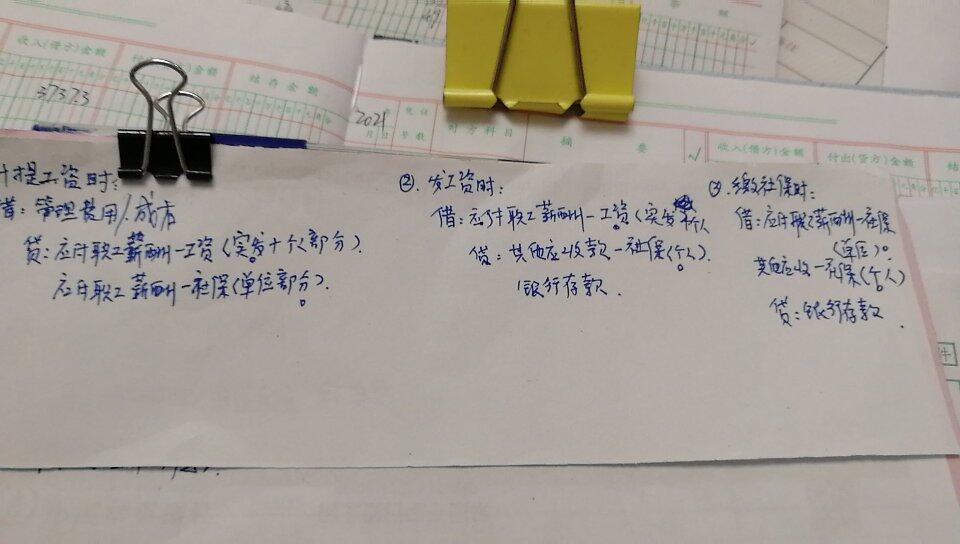 收入(借方)金额
结存金额
3737.3
2021
月
号数
对方科目
摘要
收入(借方)金额
付出(贷方)金额
计提工资时:
借: 管理费用/成本
贷: 应付职工薪酬-工资(实发十个人部分).
应付职工薪酬-社保(单位部分).
②. 发工资时:
借: 应付职工薪酬-工资(实发 个人
贷: 其他应收款-社保(个人)
银行存款.
③. 缴社保时:
借: 应付职工薪酬-社保
(单位)
其他应收-社保(个人)
贷: 银行存款.
件